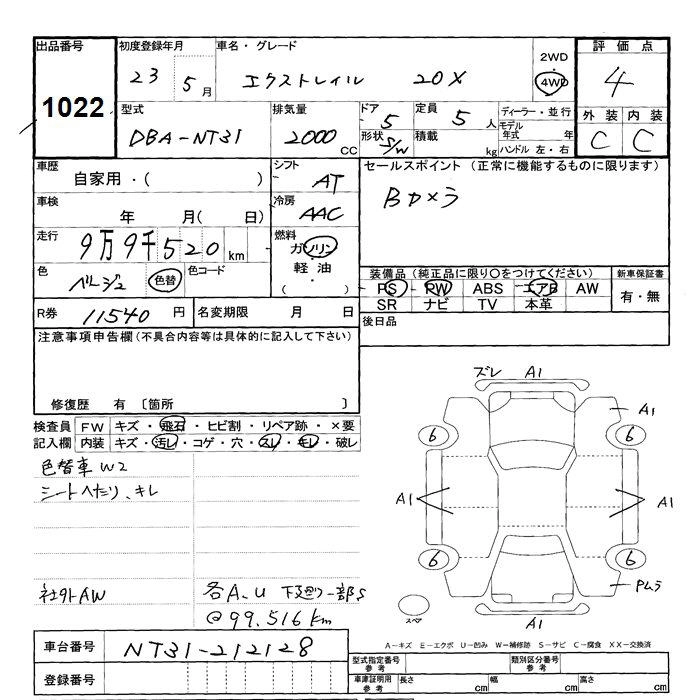 出品番号 初度登録年月 車名・グレード 2WD 評価点
1022 23 5月 エクストレイル 20X 4WD 4
型式 排気量 ドア 定員 ディーラー・並行 外装 内装
DBA-NT31 2000CC 5 5人 モデル年式 年 C C
形状 S/W 積載 kg ハンドル 左・右
車歴 シフト セールスポイント (正常に機能するものに限ります)
自家用・( ) AT Bカメラ
車検 年 月( 日) 冷房 AAC
走行 9万9千520km 燃料 ガソリン
軽油
( )
色 ベージュ 色替 色コード
装備品 (純正品に限り○をつけてください) 新車保証書
PS PW ABS エアB AW 有・無
SR ナビ TV 本革
R券 11540円 名変期限 月 日 後日品
注意事項申告欄(不具合内容等は具体的に記入して下さい)
修復歴 有 〔箇所 〕
検査員 FW キズ・飛石・ヒビ割・リペア跡・×要
記入欄 内装 キズ・汚レ・コゲ・穴・スレ・キレ・破レ
色替車 W2
シートヘたり、キレ
社外AW 各A、U 下廻り一部S
@99,516km
ズレ A1
A1
6 6
A1 A1
6 6
Pムラ
スペア
A1
A-キズ E-エクボ U-凹み W-補修跡 S-サビ C-腐食 XX-交換済
車台番号 NT31-212128
登録番号
型式指定番号 参考 類別区分番号 参考
車庫証明用 参考 長さ cm 幅 cm 高さ cm